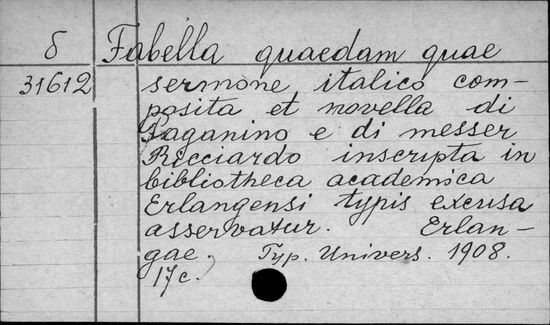 б Fabella quaedam quae
31612 sermone italico com-
posita et novella di
Paganino e di messer
Ricciardo inscripta in
bibliotheca academica
Erlangensi typis excusa
asservatur. Erlan-
gae. Typ. Univers. 1908.
17 c.